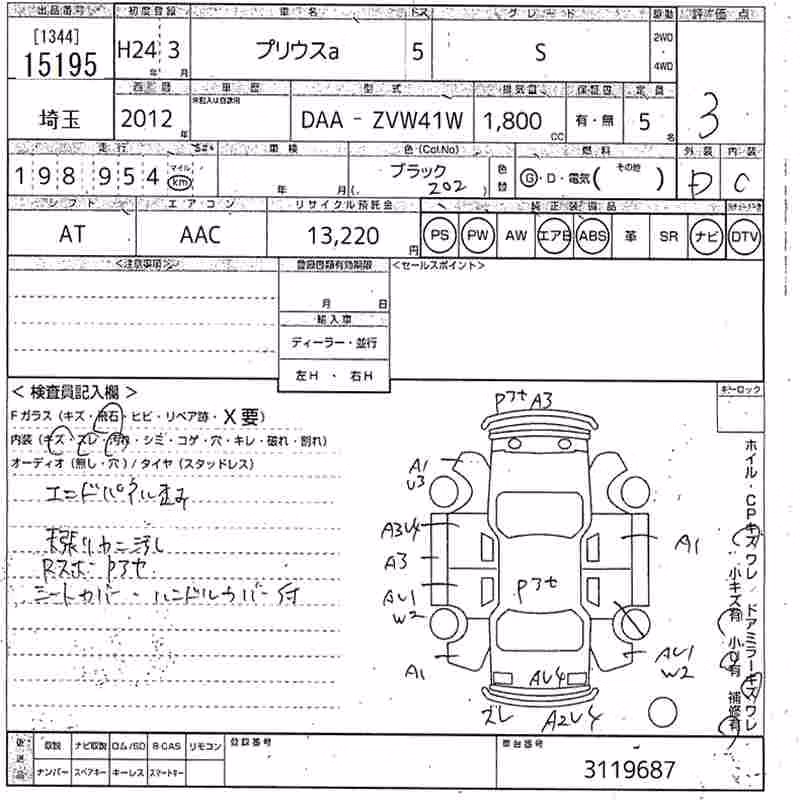 出品番号 初度登録 車名 ドア グレード 駆動 評価点
[1344]
15195 H24 年 3 月 プリウスa 5 S 2WD
4WD
3
西暦 車歴 型式 排気量 車検 定員
埼玉 2012年 未記入は自家用 DAA - ZVW41W 1,800 CC 有・無 5名
走行 車検 色(Col.No) 燃料 外装 内装
198954 マイル km 年 月 ブラック
(202) 色替 G・D・電気( その他 ) D C
シフト エアコン リサイクル預託金 純正装備品
AT AAC 13,220円 PS PW AW エアB ABS 革 SR ナビ DTV
<注意事項> 登録書類有効期限 <セールスポイント>
月 日
輸入車
ディーラー・並行
左H・右H
<検査員記入欄> キーロック
Fガラス(キズ・飛石・ヒビ・リペア跡・X要)
内装(キズ・スレ・汚れ・シミ・コゲ・穴・キレ・破れ・割れ)
オーディオ(無し・穴)/タイヤ(スタッドレス)
エンドパネル歪み
天張りカニ汚し
Rスポ- P3セ
シートカバー・ハンドルカバー付
P3セ A3
A1
U3
A3U4
A3
AU1
W2
A1
P3セ
A1
AU1
W2
AU4
ズレ A2U4
ホイル・CPキズワレ / ドアミラーキズワレ
小キズ有 小凹有 補修有
後送品 取説 ナビ取説 ロム/SD B-CAS リモコン 登録番号 車台番号
ナンバー スペアキー キーレス スマートキー 3119687